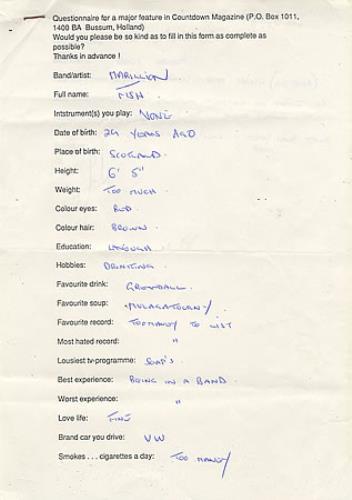 Questionnaire for a major feature in Countdown Magazine (P.O. Box 1011,
1400 BA Bussum, Holland)
Would you please be so kind as to fill in this form as complete as
possible?
Thanks in advance !
Band/artist: MARILLION
Full name: FISH
Intstrument(s) you play: NONE
Date of birth: 29 YEARS AGO
Place of birth: SCOTLAND
Height: 6' 5"
Weight: TOO MUCH
Colour eyes: RED
Colour hair: BROWN
Education: ENOUGH
Hobbies: DRINKING
Favourite drink:
Favourite soup: MULAGATOURNY
Favourite record: TOO MANY TO LIST
Most hated record: "
Lousiest tv-programme: SOAP'S
Best experience: BEING IN A BAND
Worst experience: "
Love life: FINE
Brand car you drive: VW
Smokes . . . cigarettes a day: TOO MANY